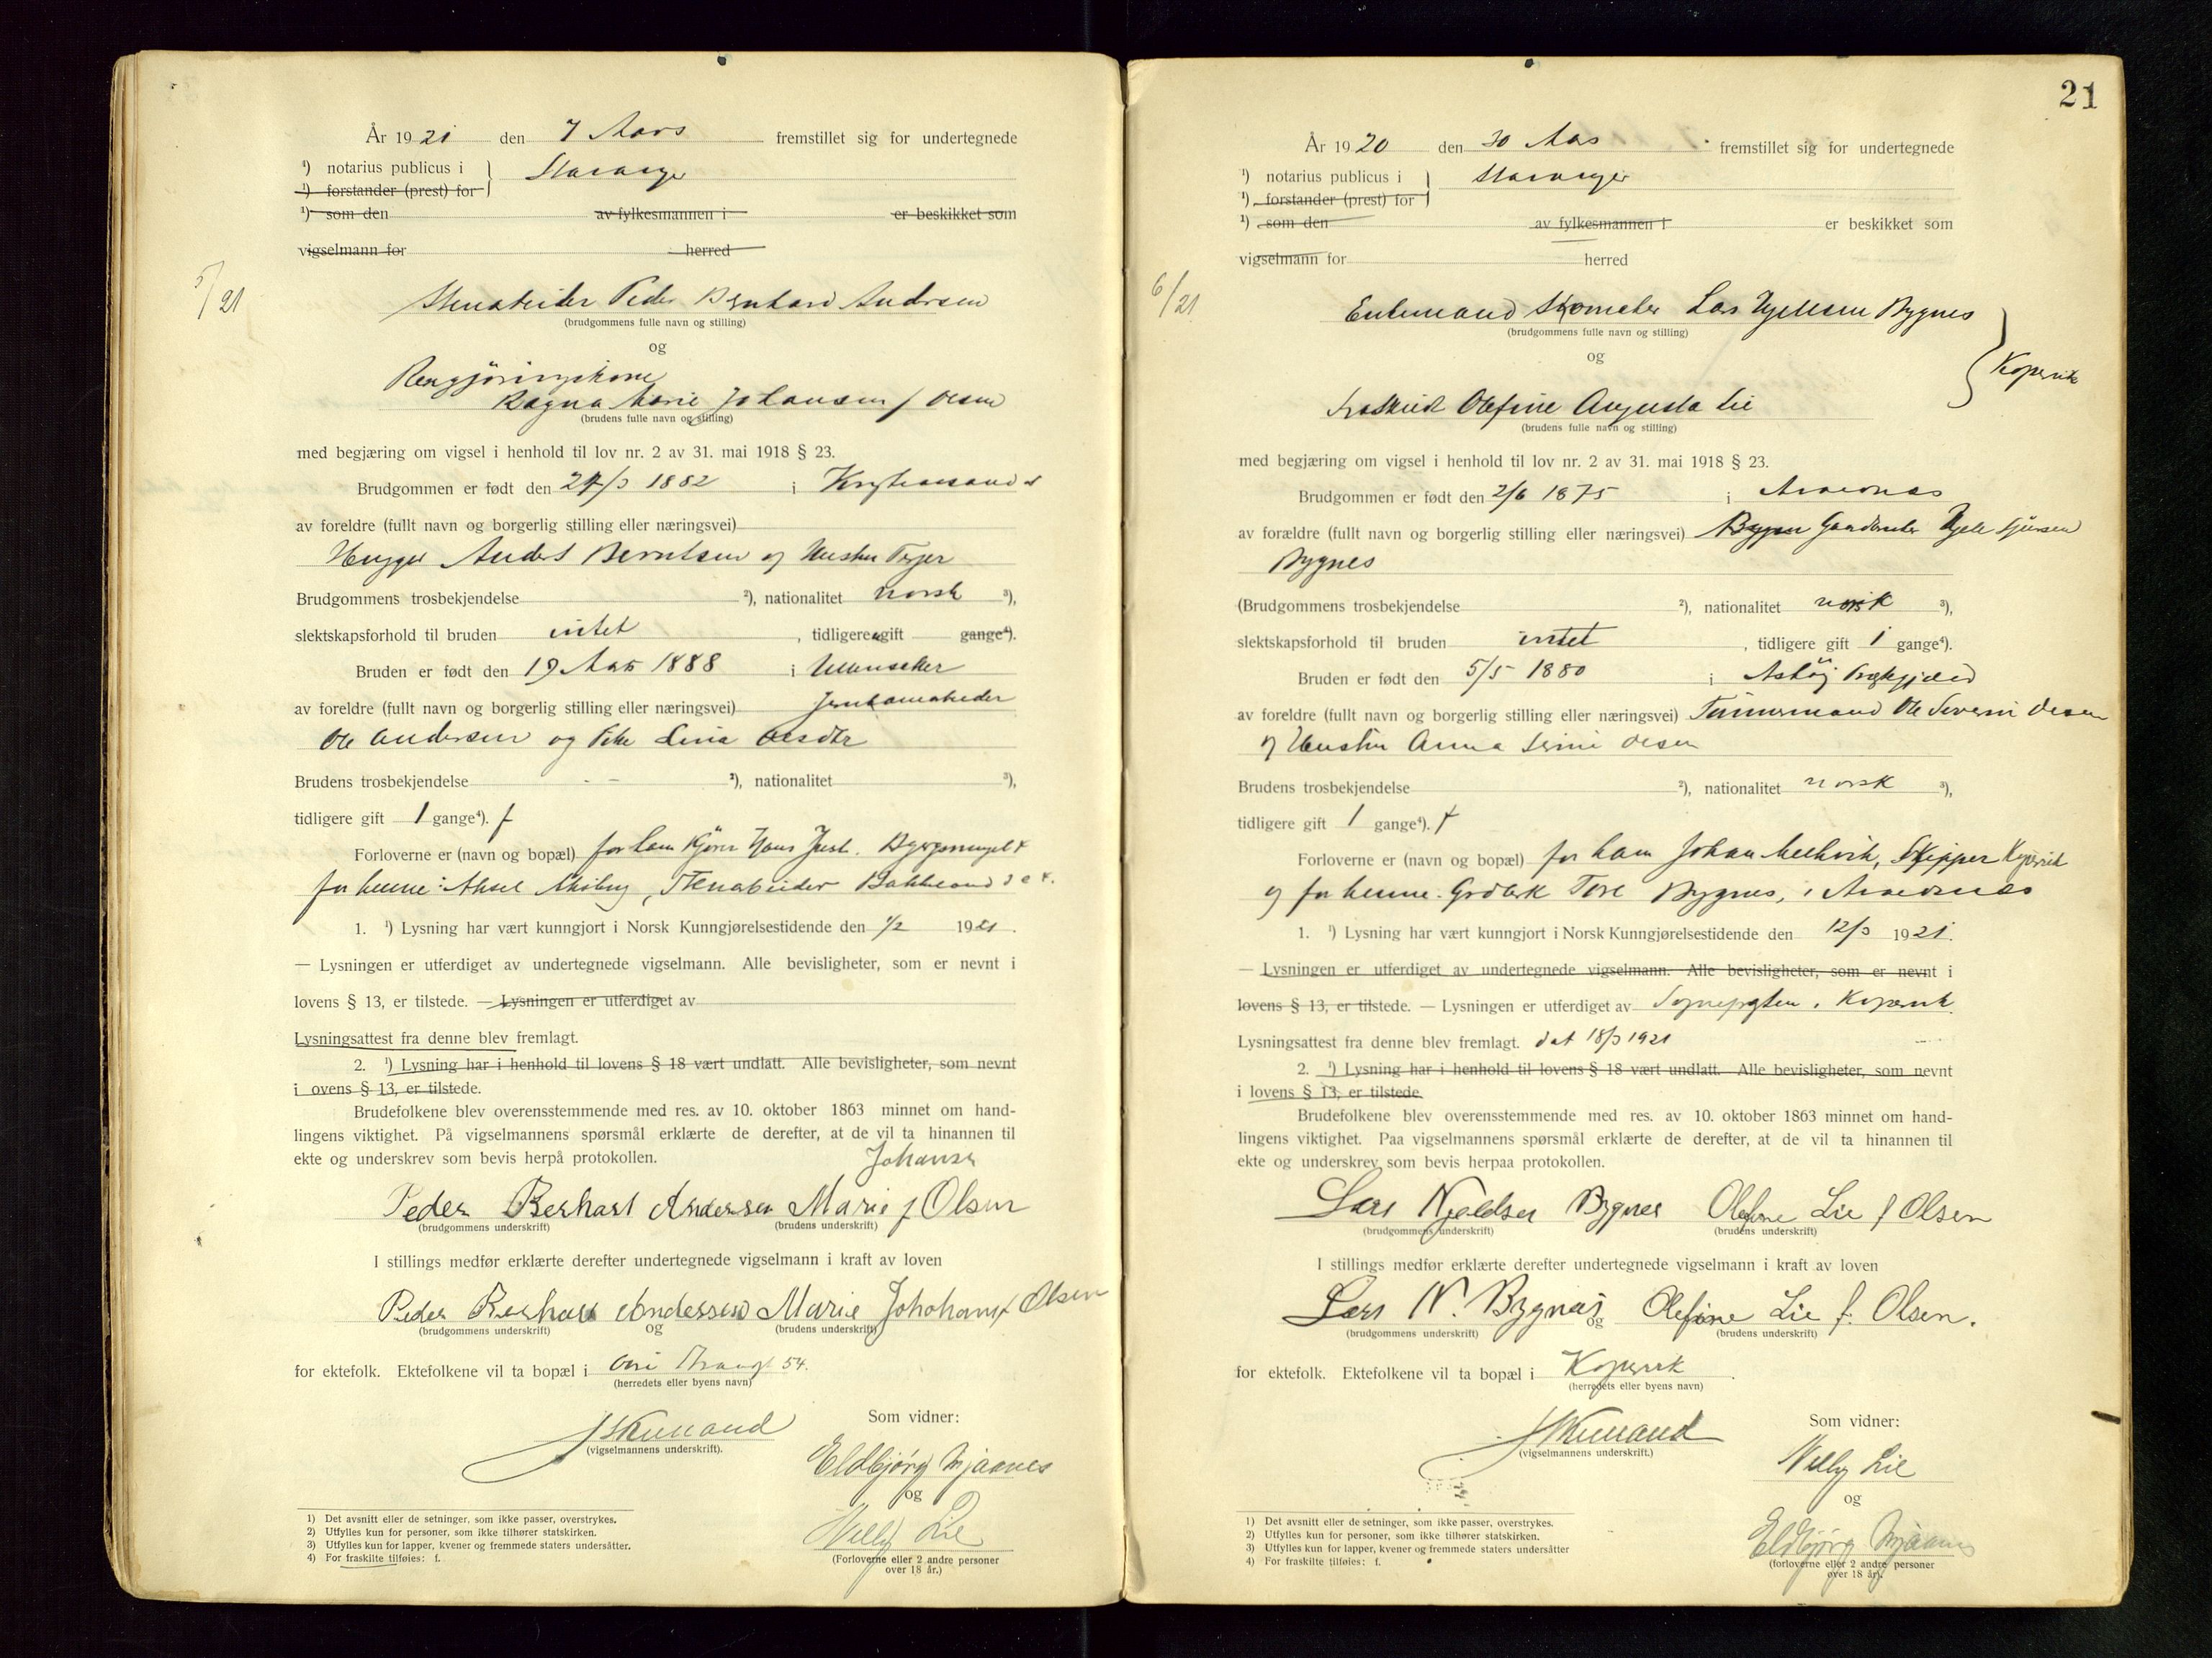 År 1921 den 7 Mars fremstillet sig for undertegnede
¹) notarius publicus i } Stavanger
¹) forstander (prest) for
¹) som den av fylkesmannen i er beskikket som
vigselmann for herred
5/21
Stenarbeider Peder Bernhard Andersen
(brudgommens fulle navn og stilling)
og
Rengjøringskone
Ragna Marie Johansen f Olsen
(brudens fulle navn og stilling)
med begjæring om vigsel i henhold til lov nr. 2 av 31. mai 1918 § 23.
Brudgommen er født den 27/3 1882 i Kristiansand S
av foreldre (fullt navn og borgerlig stilling eller næringsvei)
Anders Berntsen og Hustru
Brudgommens trosbekjendelse ²), nationalitet norsk ³),
slektskapsforhold til bruden intet , tidligere ugift gange⁴).
Bruden er født den 19 Mars 1888 i Ullensaker
av foreldre (fullt navn og borgerlig stilling eller næringsvei) Jernbanearbeider
Ole Andersen og Lina Olsdtr
Brudens trosbekjendelse - - ²), nationalitet ³),
tidligere gift 1 gange⁴). f
Forloverne er (navn og bopæl) for ham Kjører Hans
for henne: Aksel , Stenarbeider Bakkeland
1. ¹) Lysning har vært kunngjort i Norsk Kunngjørelsestidende den 1/2 1921.
— Lysningen er utferdiget av undertegnede vigselmann. Alle bevisligheter, som er nevnt i
lovens § 13, er tilstede. — Lysningen er utferdiget av
Lysningsattest fra denne blev fremlagt.
2. ¹) Lysning har i henhold til lovens § 18 vært undlatt. Alle bevisligheter, som nevnt
i ovens § 13, er tilstede.
Brudefolkene blev overensstemmende med res. av 10. oktober 1863 minnet om hand-
lingens viktighet. På vigselmannens spørsmål erklærte de derefter, at de vil ta hinannen til
ekte og underskrev som bevis herpå protokollen.
Johansn
Peder Berhart Andersen Marie f Olsen
(brudgommens underskrift) (brudens underskrift)
I stillings medfør erklærte derefter undertegnede vigselmann i kraft av loven
Peder Berhart Andersen Marie Johohansf Olsen
(brudgommens underskrift) og (brudens underskrift)
for ektefolk. Ektefolkene vil ta bopæl i 54.
(herredets eller byens navn)
(vigselmannens underskrift).
Som vidner:
Eldbjørg Mjaanes
og
Nelly Lie
(Forloverne eller 2 andre personer
over 18 år.)
1) Det avsnitt eller de setninger, som ikke passer, overstrykes.
2) Utfylles kun for personer, som ikke tilhører statskirken.
3) Utfylles kun for lapper, kvener og fremmede staters undersåtter.
4) For fraskilte tilføies: f.
21
År 1920 den 30 Mars fremstillet sig for undertegnede
¹) notarius publicus i } Stavanger
¹) forstander (prest) for
¹) som den av fylkesmannen i er beskikket som
vigselmann for herred
6/21
Enkemand Skomaker Lars Njeldsen Bygnes
(brudgommens fulle navn og stilling)
og
} Kopervik
Fraskilt Olefine Augusta Lie
(brudens fulle navn og stilling)
med begjæring om vigsel i henhold til lov nr. 2 av 31. mai 1918 § 23.
Brudgommen er født den 2/6 1875 i Avaldsnes
av forældre (fullt navn og borgerlig stilling eller næringsvei) Gaardbruker
Bygnes
(Brudgommens trosbekjendelse ²), nationalitet norsk ³),
slektskapsforhold til bruden intet , tidligere gift 1 gange⁴).
Bruden er født den 5/5 1880 i Prestegjæld
av foreldre (fullt navn og borgerlig stilling eller næringsvei) Tømmermand Ole Severin Olsen
og Hustru Anna Serine Olsen
Brudens trosbekjendelse ²), nationalitet norsk ³),
tidligere gift 1 gange⁴). f
Forloverne er (navn og bopæl) for ham Johan , Skipper Kopervik
og for henne. Grdbrk Tore Bygnes, i Avaldsnes
1. ¹) Lysning har vært kunngjort i Norsk Kunngjørelsestidende den 12/3 1921.
— Lysningen er utferdiget av undertegnede vigselmann. Alle bevisligheter, som er nevnt i
lovens § 13, er tilstede. — Lysningen er utferdiget av Sogneprsten i Kopervik
Lysningsattest fra denne blev fremlagt. dat 18/3 1921
2. ¹) Lysning har i henhold til lovens § 18 vært undlatt. Alle bevisligheter, som nevnt
i lovens § 13, er tilstede
Brudefolkene blev overensstemmende med res. av 10. oktober 1863 minnet om hand-
lingens viktighet. Paa vigselmannens spørsmål erklærte de derefter, at de vil ta hinannen til
ekte og underskrev som bevis herpaa protokollen.
Lars Njeldsen Bygnes Olefine Lie f Olsen
(brudgommens underskrift) (brudens underskrift)
I stillings medfør erklærte derefter undertegnede vigselmann i kraft av loven
Lars N. Bygnes og Olefine Lie f. Olsen.
(brudgommens underskrift) (brudens underskrift)
for ektefolk. Ektefolkene vil ta bopæl i Kopervik.
(herredets eller byens navn)
(vigselmannens underskrift.)
Som vidner:
Nelly Lie
og
Eldbjørg Mjaanes
(forloverne eller 2 andre personer
over 18 år).
1) Det avsnitt eller de setninger, som ikke passer, overstrykes.
2) Utfylles kun for personer, som ikke tilhører statskirken.
3) Utfylles kun for lapper, kvener og fremmede staters undersåtter
4) For fraskilte tilføies: f.